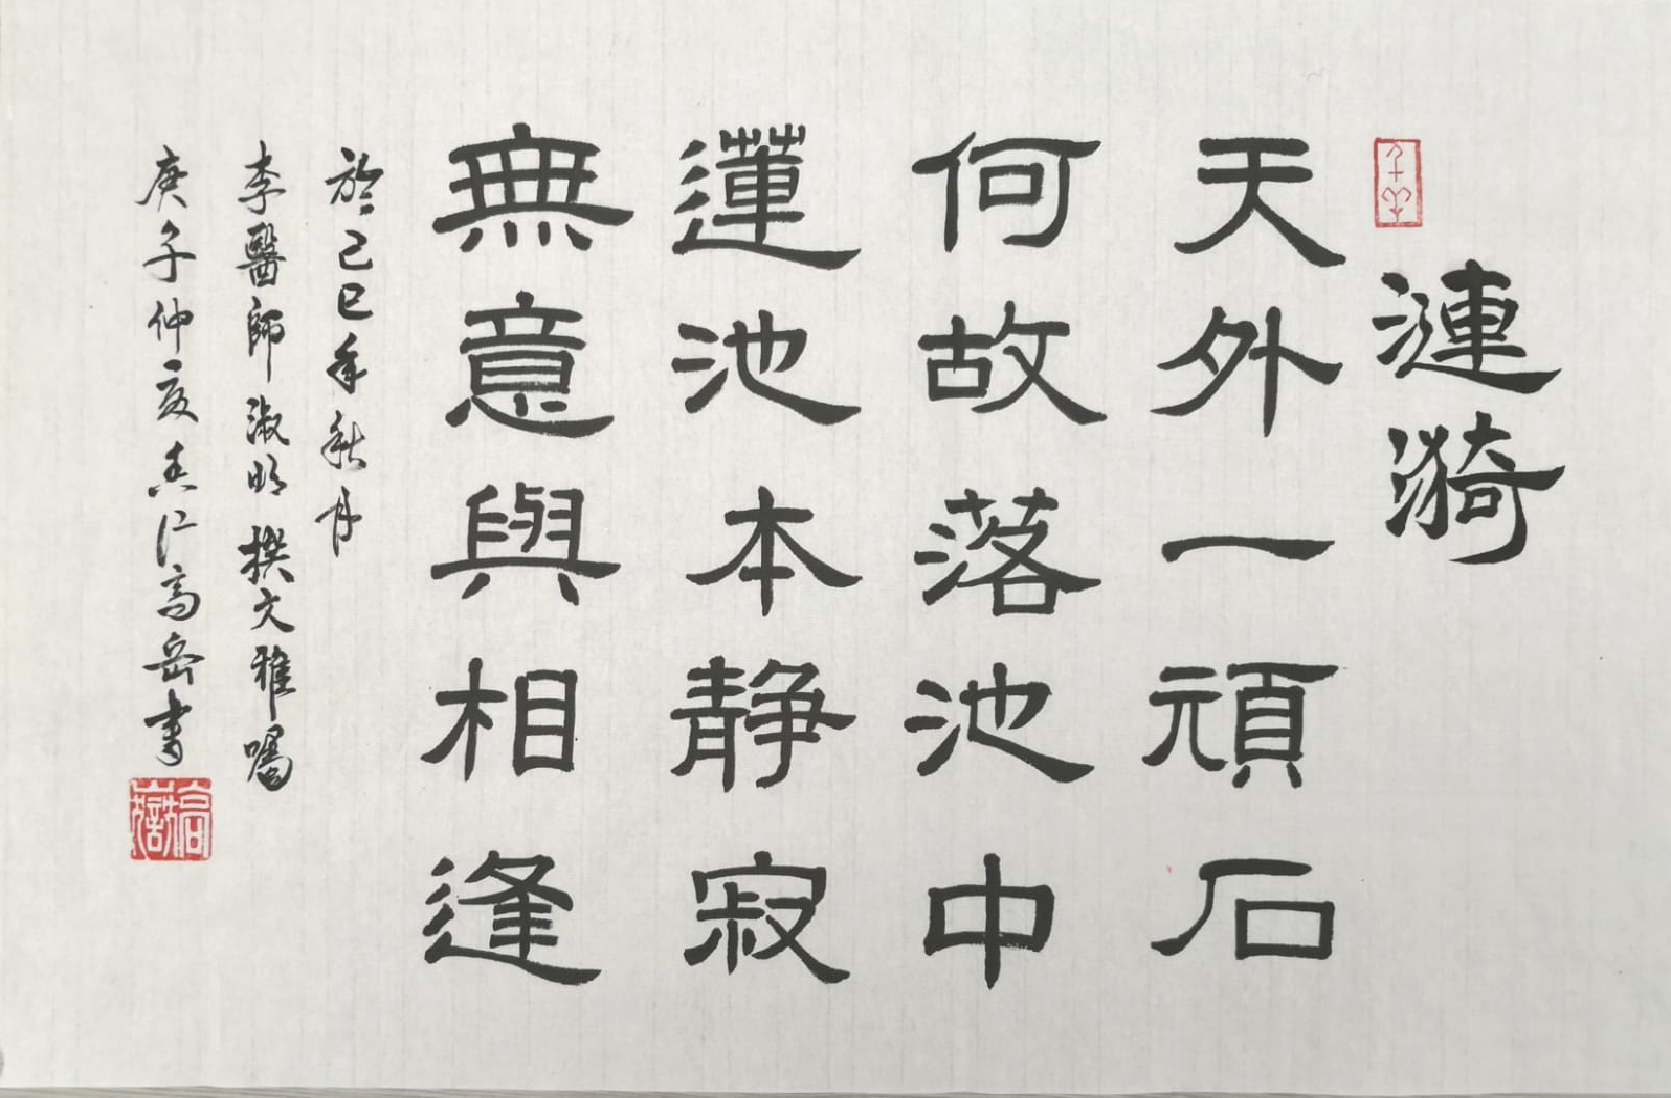 漣漪
天外一頑石
何故落池中
蓮池本静寂
無意與相逢
於己巳年秋月
李醫師淑明撰文雅囑
庚子仲夏岳書